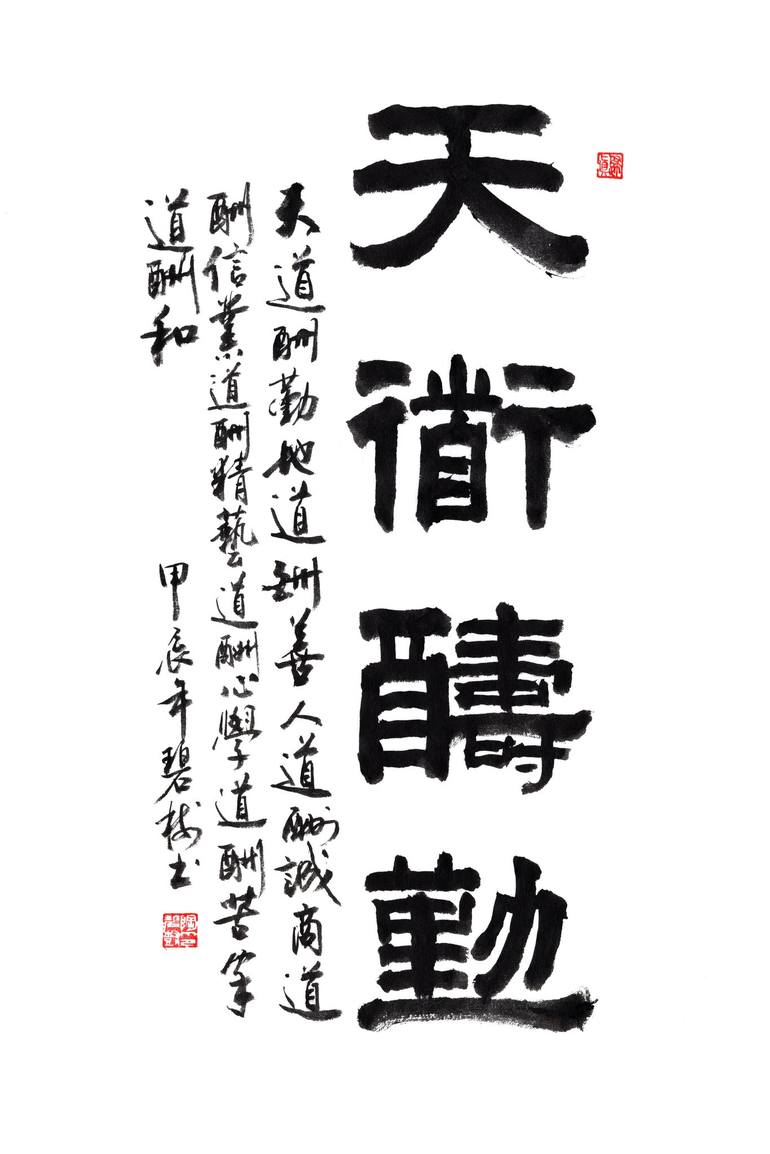 天衜醻勤
天道酬勤地道酬善人道酬誠商道
酬信業道酬精藝道酬心學道酬苦家
道酬和
甲辰年碧樹書